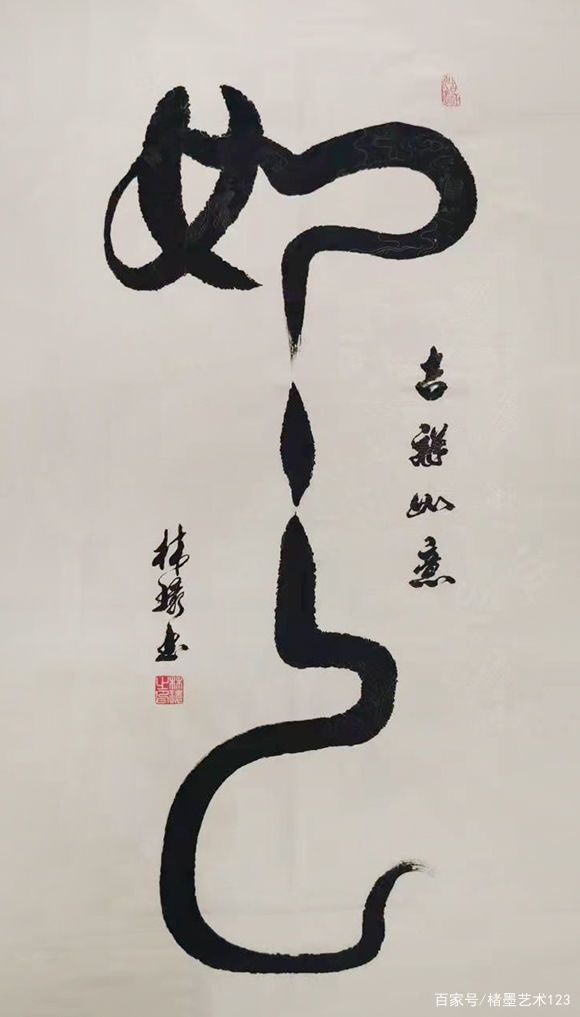 如意
吉祥如意
书
百家号/楮墨艺术123